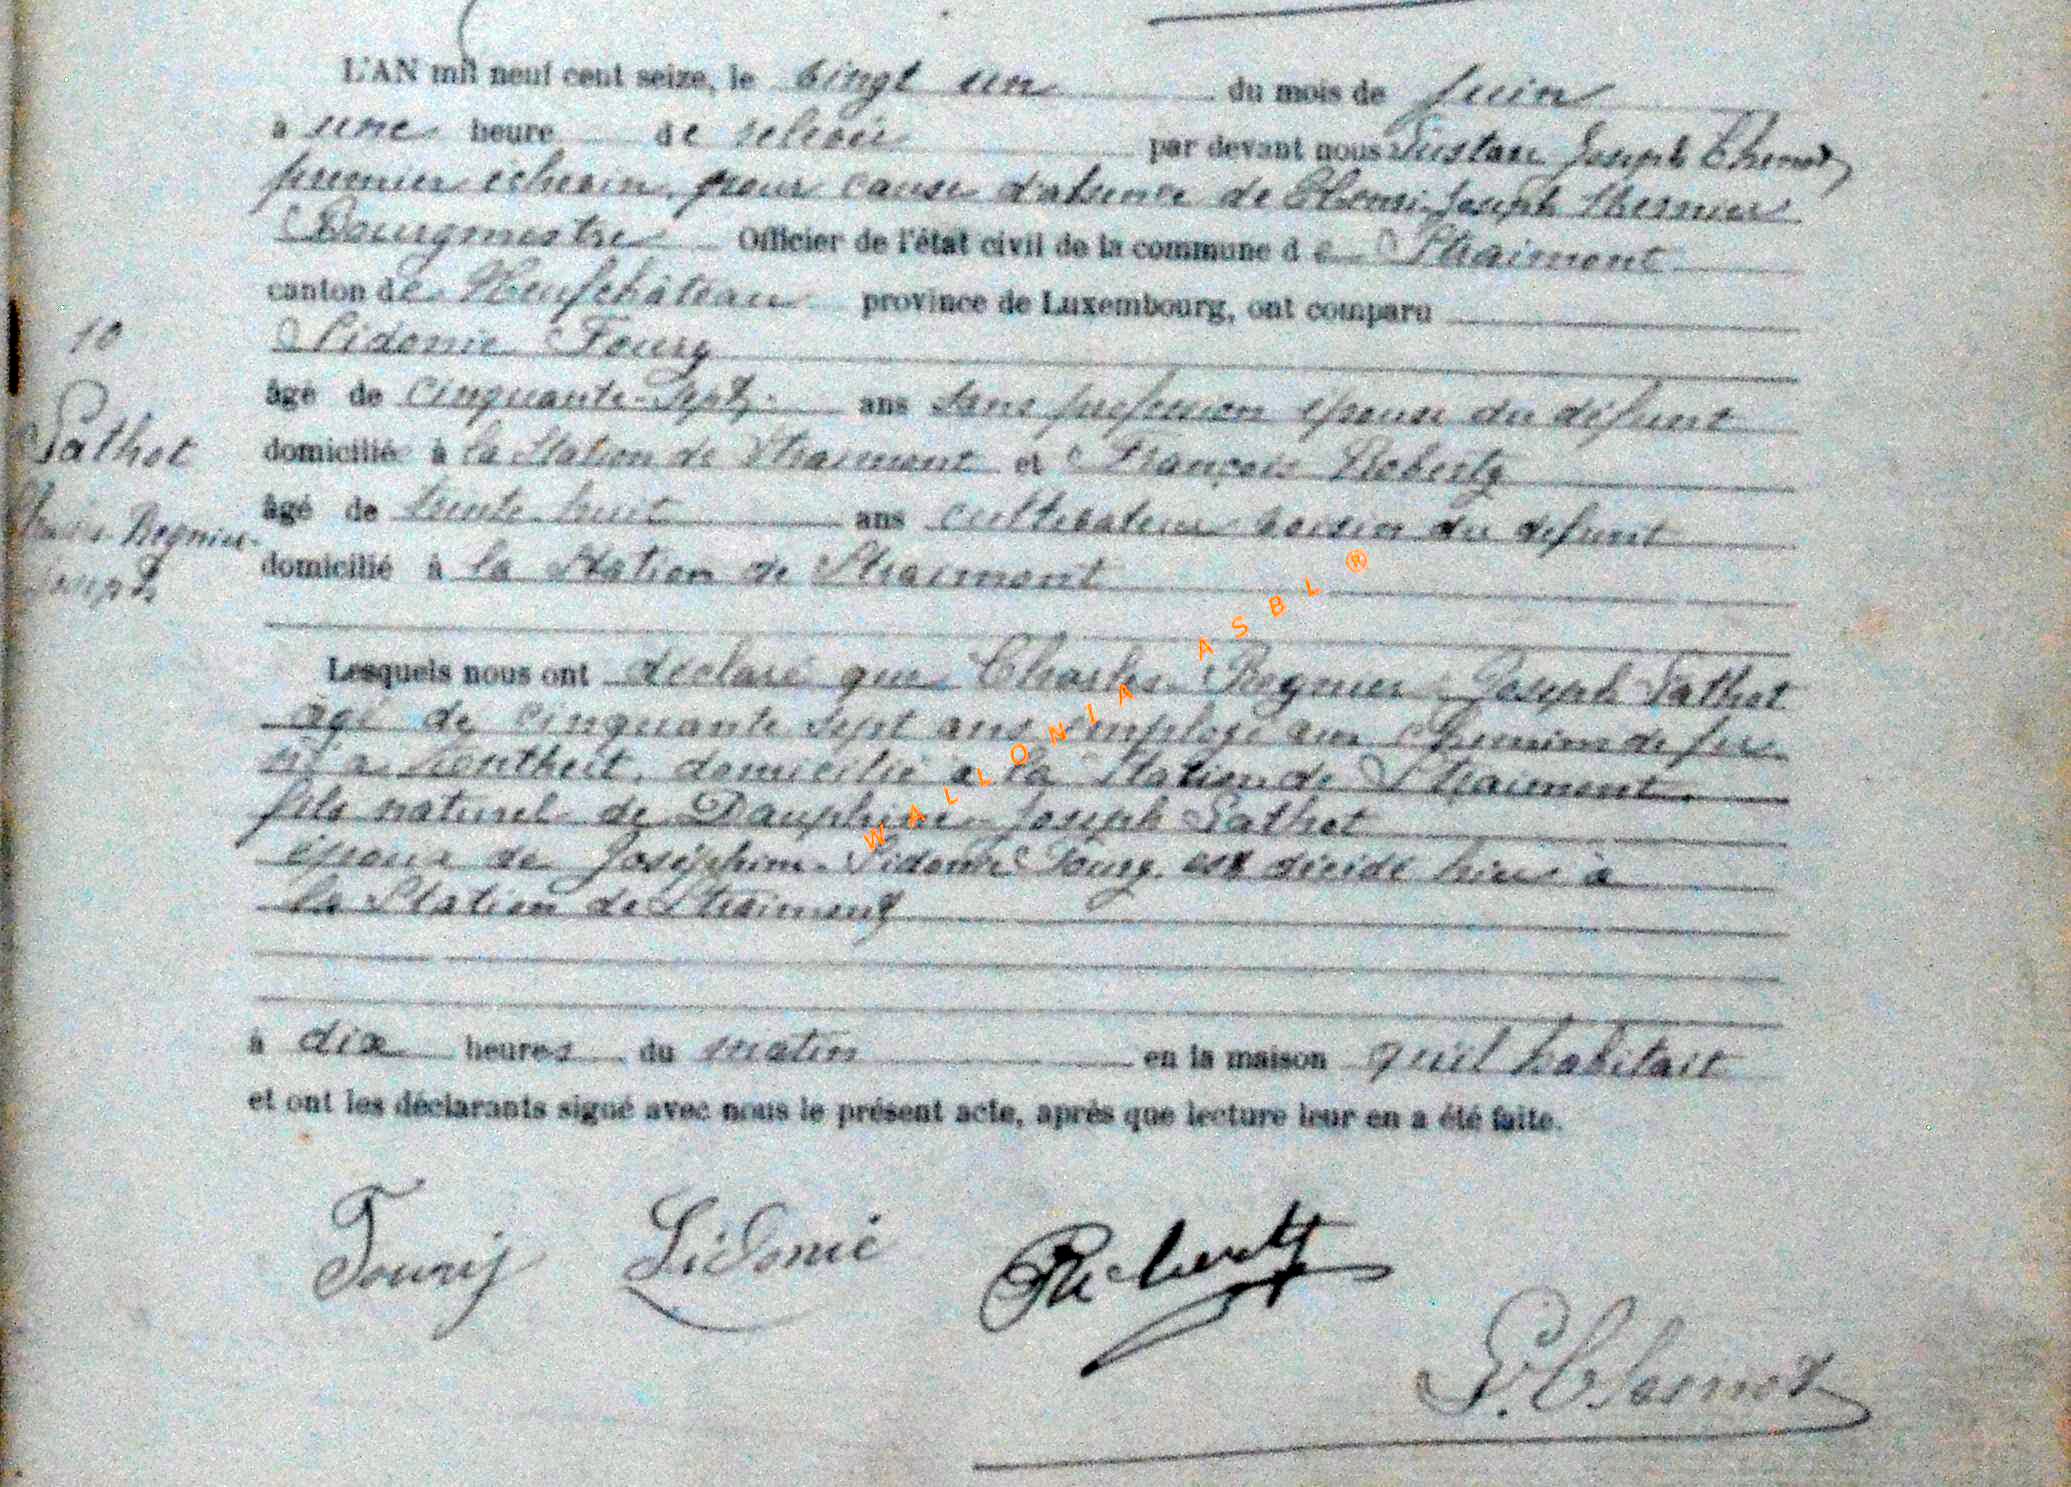 L'AN mil neuf cent seize, le vingt un du mois de juin
à une heure de relevée par devant nous Gustave Joseph Thernot,
premier échevin, pour cause d'absence de Henri Joseph
Bourgmestre Officier de l'état civil de la commune de Straimont
canton de Neufchâteau province de Luxembourg, ont comparu
Sidonie Foury
âgé de cinquante-sept ans sans profession épouse du défunt
domiciliée à la Station de Straimont et François Robertz
âgé de trente huit ans cultivateur voisin du défunt
domicilié à la Station de Straimont
10
Lathot
Charles Regnier
Joseph
Lesquels nous ont déclaré que Charles Regnier Joseph Lathot
âgé de cinquante sept ans employé aux chemins de fer
né à domicilié à la Station de Straimont
fils naturel de Dauphine Joseph Lathot
époux de Joséphine Sidonie Foury est décédé hier à
la Station de Straimont
à dix heures du matin en la maison qu'il habitait
et ont les déclarants signé avec nous le présent acte, après que lecture leur en a été faite.
Foury Sidonie Robertz
WALLONIA ASBL ®